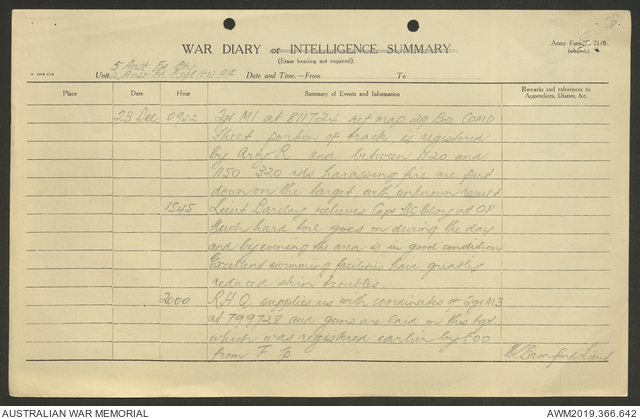 WAR DIARY or INTELLIGENCE SUMMARY
(Erase heading not required).
Army Form C. 2118
(adapted).
5 Aust Fd Bty
Unit 2 Aust Fd Regt
Date and Time.—From To
Place Date Hour Summary of Events and Information Remarks and references to Appendices, Diaries, &c.
23 Dec 0952 Tgt M1 at 811724 ref map 29 Bau COMD
Sheet portion of track is registered
by Arty R and between 1120 and
1150 320 rds harassing fire are put
down on the target, with unknown result
1545 Lieut Barclay relieves Capt at OP
Much hard work goes on during the day
and by evening the area is in good condition
Excellent swimming facilities have greatly
reduced skin troubles.
2000 R H Q supplies us with coordinates of Tgt M3
at 799728 and guns are laid on this tgt
which was registered earlier by FOO
from F Tp
Lieut
AUSTRALIAN WAR MEMORIAL
AWM2019.366.642